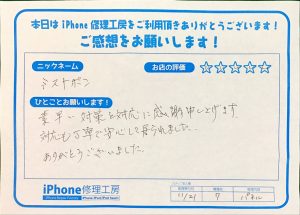 本日は iPhone 修理工房をご利用頂きありがとうございます!
ご感想をお願いします!
ニックネーム
お店の評価 ☆☆☆☆☆
ミストボン
ひとことお願いします!
素早い対策と対応に感謝申し上げます
対応も丁寧で安心して居られました。
ありがとうございました。
iPhone修理工房
11/21 7 パネル